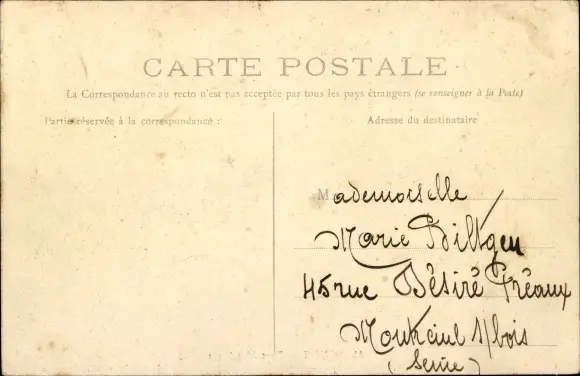 CARTE POSTALE
La Correspondance au recto n'est pas acceptée par tous les pays étrangers (se renseigner à la Poste)
Partie réservée à la correspondance :
Adresse du destinataire
Mademoiselle
Marie Biltgen
45 rue Désiré Préaux
Montreuil s/bois
(Seine)